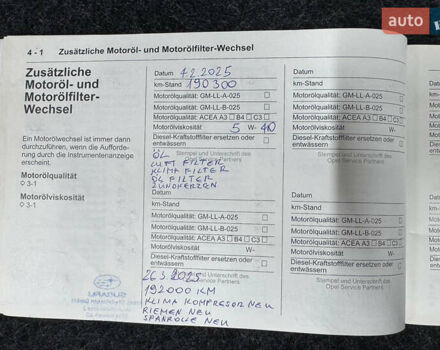 auto
4 - 1 Zusätzliche Motoröl- und Motorölfilter-Wechsel
Zusätzliche
Motoröl- und
Motorölfilter-
Wechsel
Ein Motorölwechsel ist immer dann
durchzuführen, wenn die Aufforde-
rung durch die Instrumentenanzeige
erscheint.
Motorölqualität
3-1
Motorölviskosität
3-1
Datum 4.2.2025
km-Stand 190 300
Motorölqualität: GM-LL-A-025 ☐
Motorölqualität: GM-LL-B-025 ☐
Motorölqualität: ACEA A3 ☐ B4 ☐ C3 ☐
Motorölviskosität 5 W- 40
Diesel-Kraftstofffilter ersetzen oder
entwässern ☐
Stempel und Unterschrift des
Opel Service Partners
ÖL
LUFT FILTER
KLIMA FILTER
ÖL FILTER
ZUNDKERZEN
km-Stand
Motorölqualität: GM-LL-A-025 ☐
Motorölqualität: GM-LL-B-025 ☐
Motorölqualität: ACEA A3 ☐ B4 ☐ C3 ☐
Motorölviskosität W-
Diesel-Kraftstofffilter ersetzen oder
entwässern ☐
Stempel und Unterschrift des
Opel Service Partners
26 3 2025
192000 KM
KLIMA KOMPRESOR NEU
RIEMEN NEU
SPANROLLE NEU
Datum
km-Stand
Motorölqualität: GM-LL-A-025
Motorölqualität: GM-LL-B-025
Motorölqualität: ACEA A3 ☐ B4 ☐ C3 ☐
Motorölviskosität W-
Diesel-Kraftstofffilter ersetzen oder
entwässern
Stempel und Unterschrift des
Opel Service Partners
Datum
km-Stand
Motorölqualität: GM-LL-A-025
Motorölqualität: GM-LL-B-025
Motorölqualität: ACEA A3 ☐ B4 ☐ C3 ☐
Motorölviskosität W-
Diesel-Kraftstofffilter ersetzen oder
entwässern
Stempel und Unterschrift des
Opel Service Partners